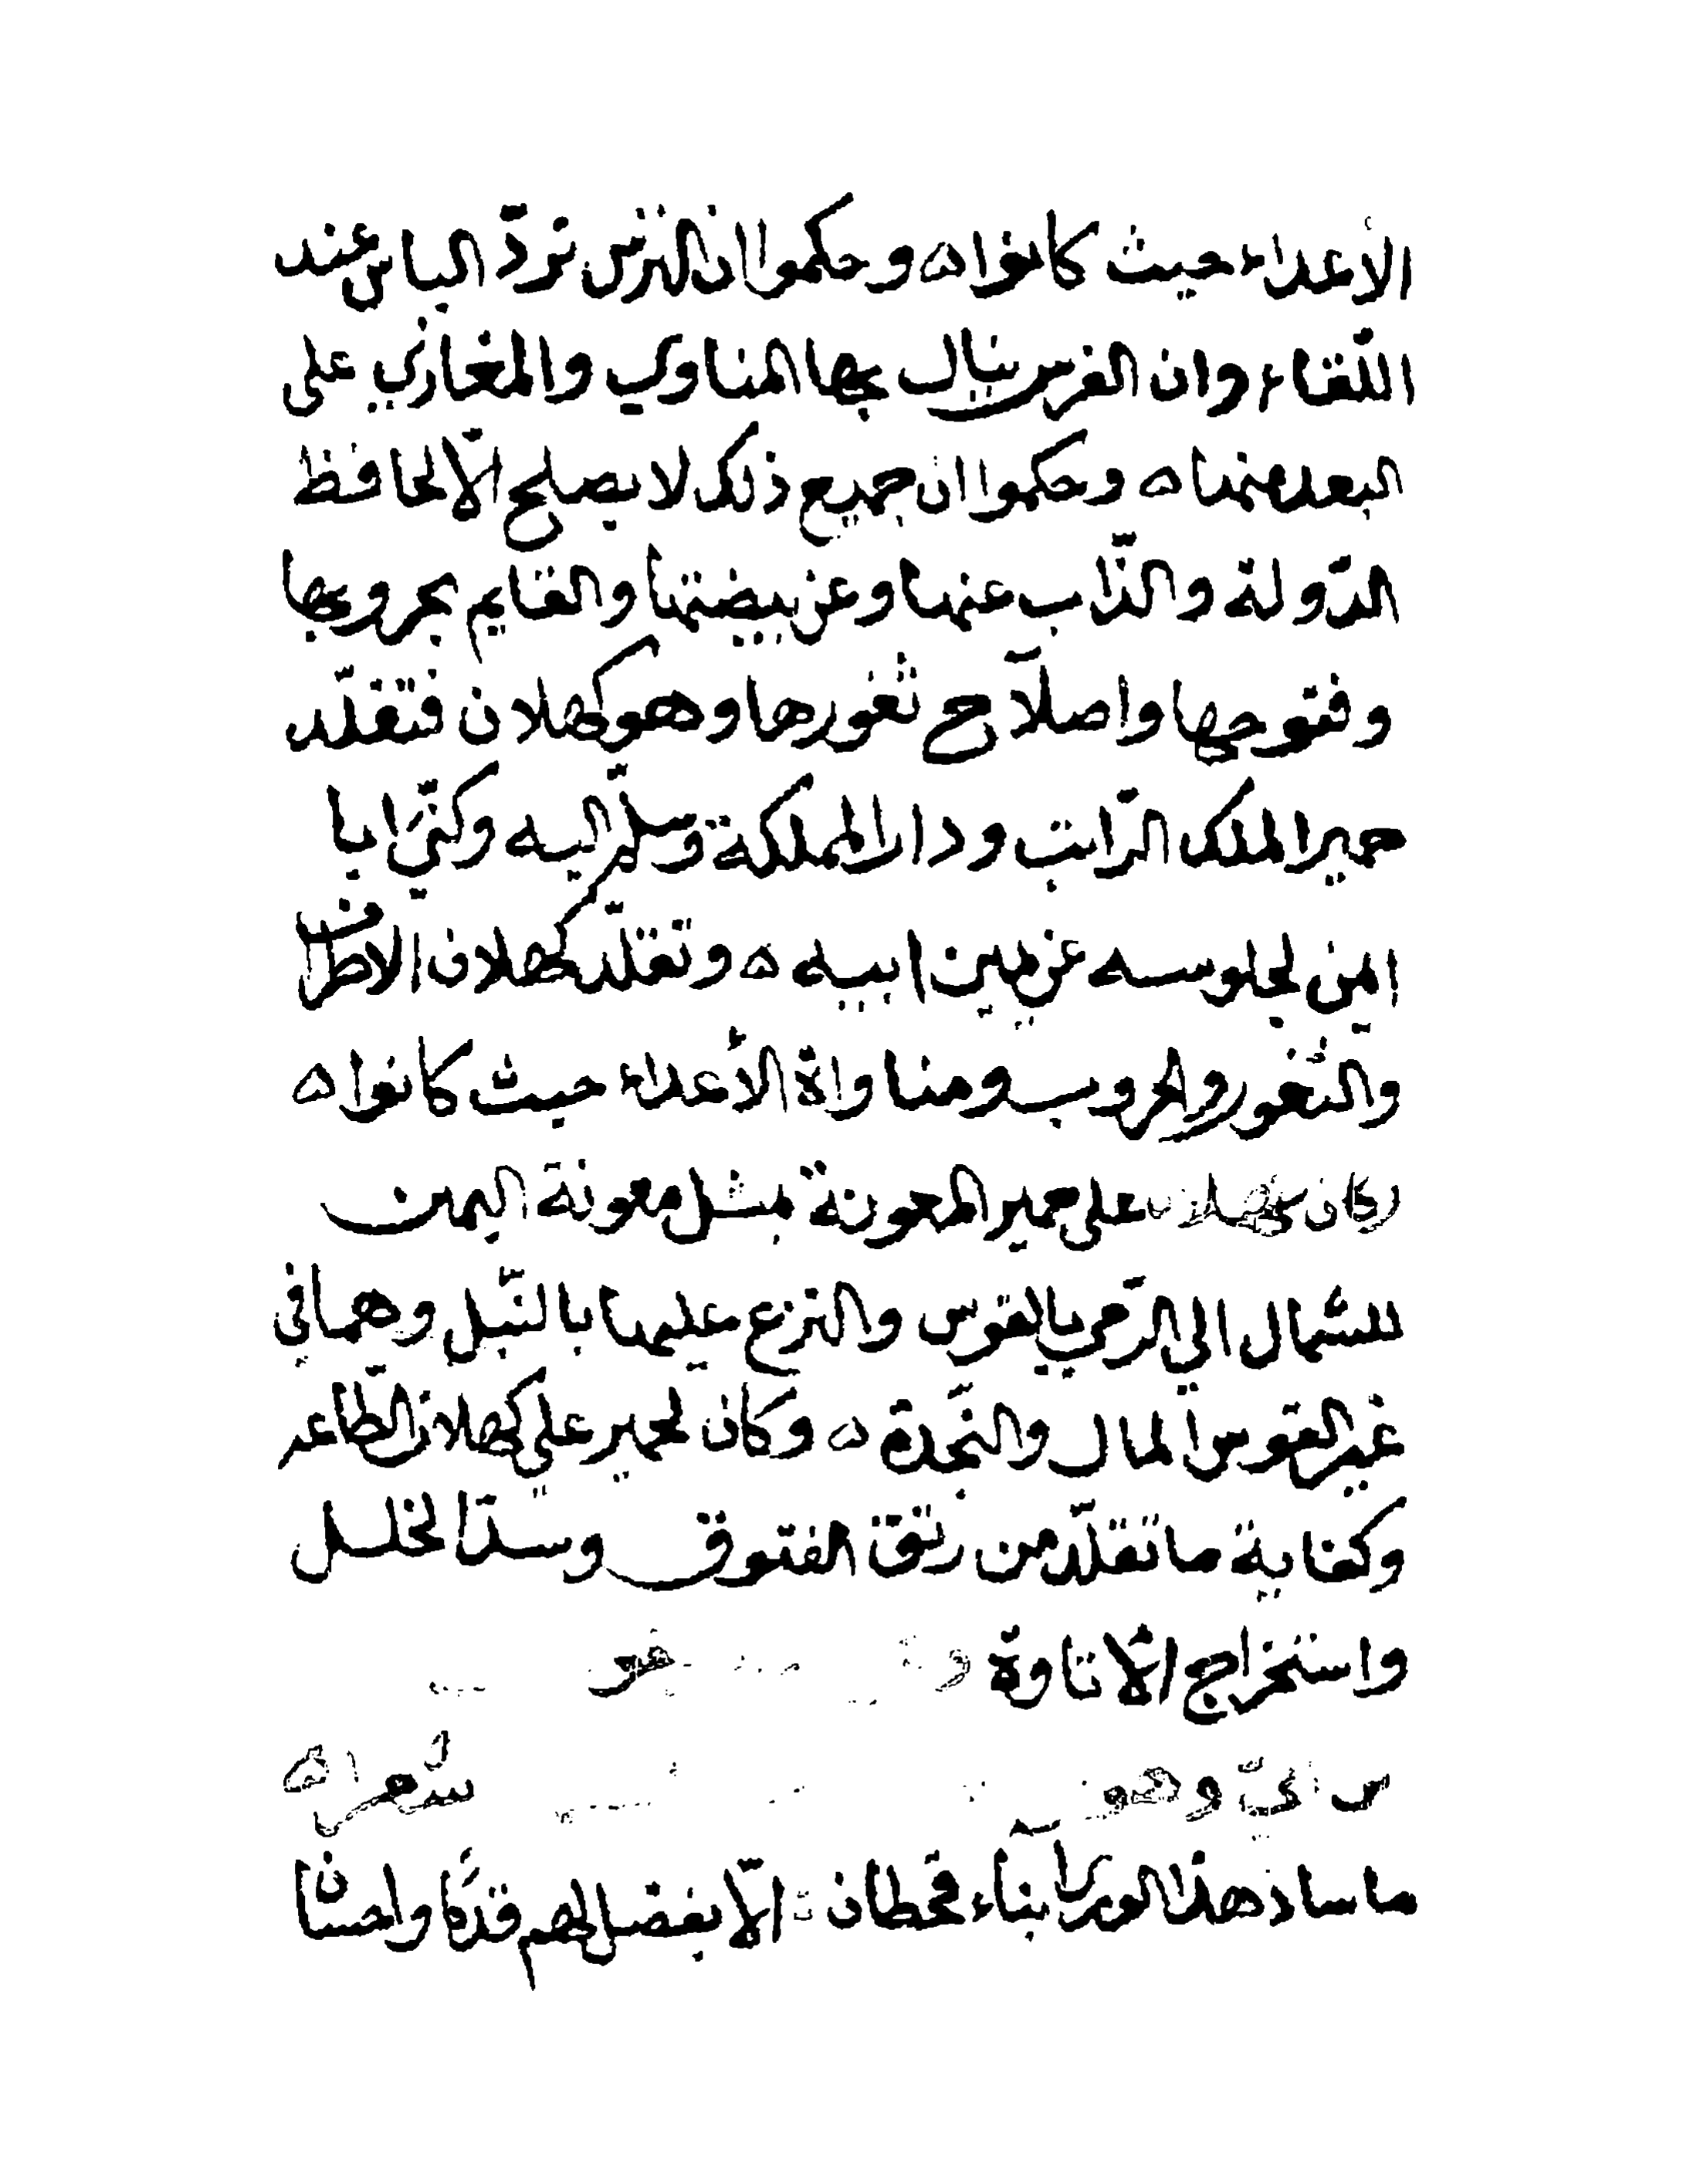 الأعداء حيث كانوا ه وحكموا ان الترس تردّ الباس عند
اللّقاء وان القوس ينال بها المناوي والمغازي على
البعد منها ه وحكموا ان جميع ذلك لا يصلح الّا لحافظ
الدّولة والذّاب عنها وعن بيضتها والقايم بحروبها
وفتوحها واصلاح ثغورها وهو كهلان فتقلّد
حمير الملك الرّاتب ودار المملكة وسلّم اليه وكنّي ابا
ايمن لجلوسه عن يمين ابيه ه وتقلّد كهلان الاطراف
والثّغور والحروب ومناواة الأعداء حيث كانوا ه
وكان لكهلان على حمير المعونة بمثل معونة اليمين
للشّمال الي الرّمي بالقوس والنزع عليها بالنّبل وهما في
غير القوس المال والنّجدة ه وكان لحمير على كهلان الطّاعه
وكفاية ما تقلّد من رتق الفتوق وسدّ الخلل
واستخراج الأتاوة
وهو شعرا ه
ما ساد هذا الورى أبناء قحطان : الّا بفضل لهم قدمًا واحسان